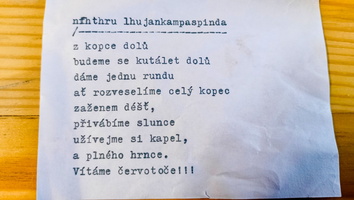 nfhthru lhujankampaspinda
/--------------------
z kopce dolů
budeme se kutálet dolů
dáme jednu rundu
ať rozveselíme celý kopec
zaženem déšť,
přivábíme slunce
užívejme si kapel,
a plného hrnce.
Vítáme červotoče!!!